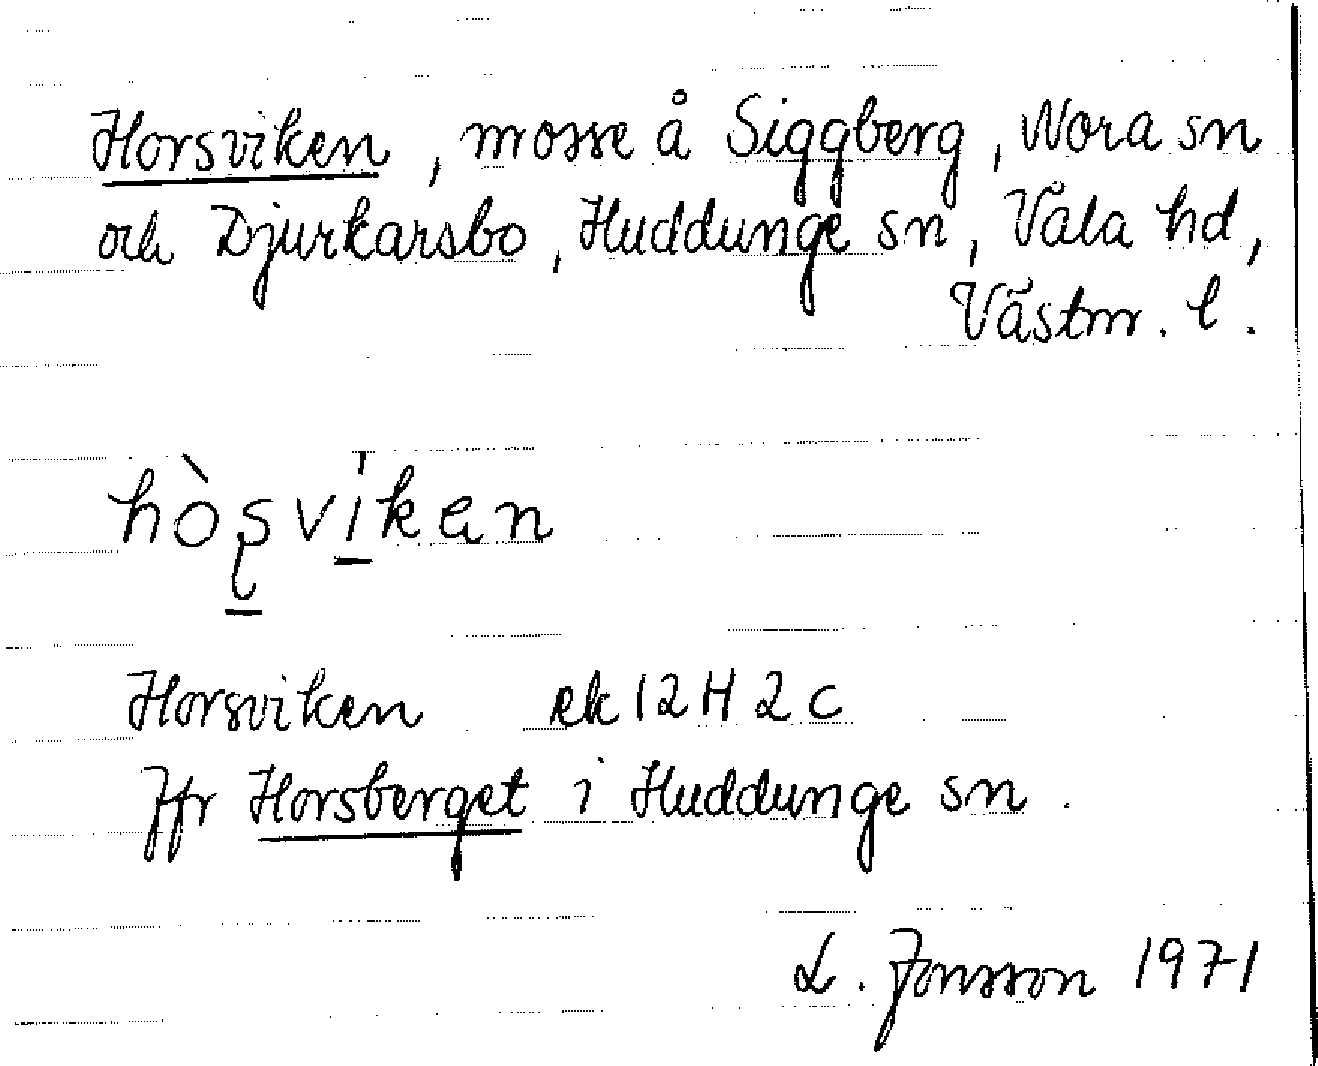 Horsviken, mosse å Siggberg, Nora sn
och Djurkarsbo, Huddunge sn, Våla hd,
Västm. l.
hòʂvikən
Horsviken ek 12H2c
Jfr Horsberget i Huddunge sn.
L. Jonsson 1971